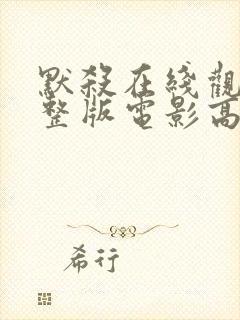 默殺在綫觀
整版電影高
希行